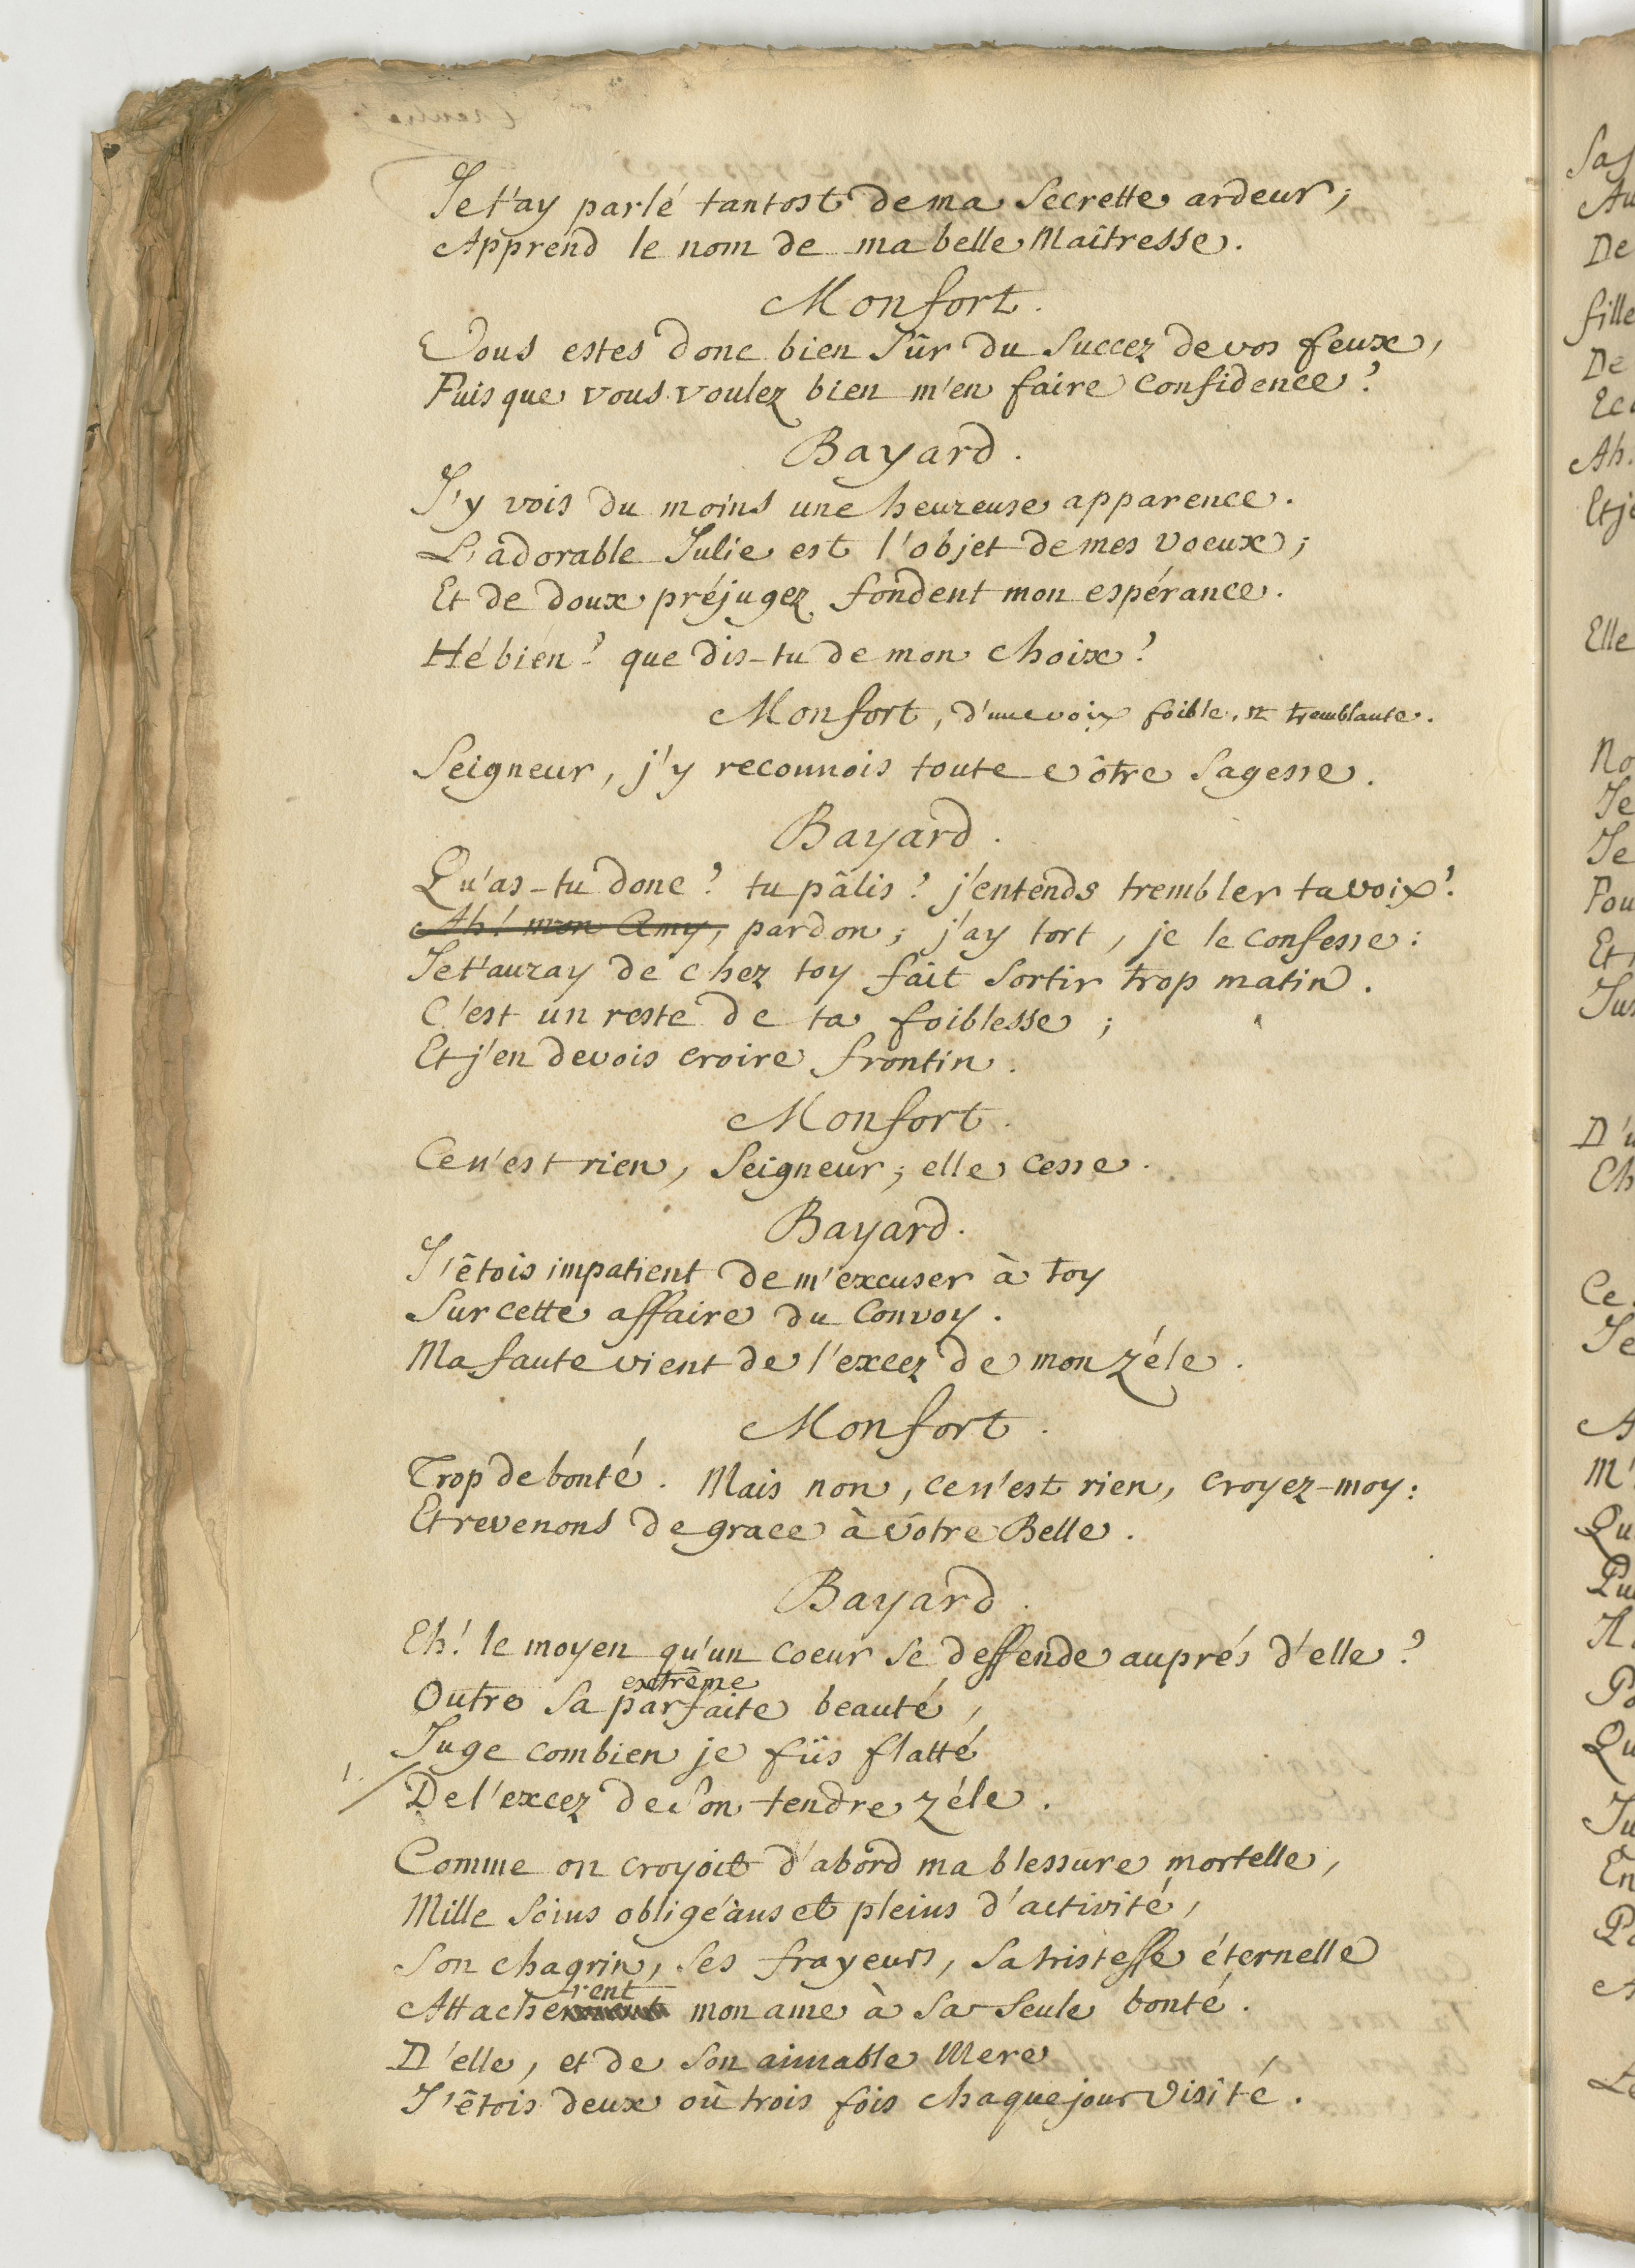 Je t'ay parlé tantost de ma Secrette ardeur;
Apprend le nom de ma belle Maîtresse.
Monfort.
Vous estes donc bien Sûr du Succez de vos feux,
Puis que vous voulez bien m'en faire Confidence?
Bayard.
J'y vois du moins une heureuse apparence.
L'adorable Julie est l'objet de mes voeux;
Et de doux préjugez fondent mon espérance.
Hé bien? que dis-tu de mon choix?
Monfort, d'une voix foible, et tremblante.
Seigneur, j'y reconnois toute vôtre Sagesse.
Bayard.
Qu'as-tu donc? tu pâlis? j'entends trembler ta voix?
Ah! mon Amy, pardon; j'ay tort, je le confesse:
Je t'auray de chez toy fait Sortir trop matin.
C'est un reste de ta foiblesse;
Et j'en devois croire frontin.
Monfort.
Ce n'est rien, Seigneur; elle cesse.
Bayard.
J'êtois impatient de m'excuser à toy
Sur cette affaire du Convoy.
Ma faute vient de l'excez de mon zéle.
Monfort.
Trop de bonté. Mais non, ce n'est rien, croyez-moy:
Et revenons de grace à vôtre Belle.
Bayard.
Eh! le moyen qu'un coeur se deffende auprés d'elle?
extrême
Outre Sa parfaite beauté,
Juge combien je fûs flatté
De l'excez de Son tendre zéle.
Comme on croyoit d'abord ma blessure mortelle,
Mille Soins obligéans et pleins d'activité,
Son chagrin, Ses frayeurs, Sa tristesse éternelle
rent
Attache mon ame à Sa Seule bonté.
D'elle, et de Son aimable Mere
J'êtois deux où trois fois chaque jour Visité.